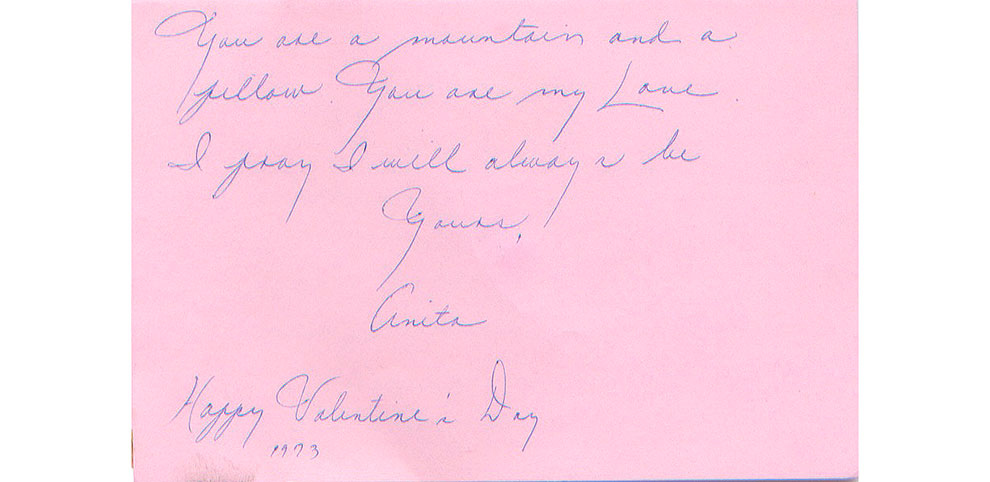 You are a mountain and a
pillow You are my Love
I pray I will always be
Yours,
Anita
Happy Valentine's Day
1973